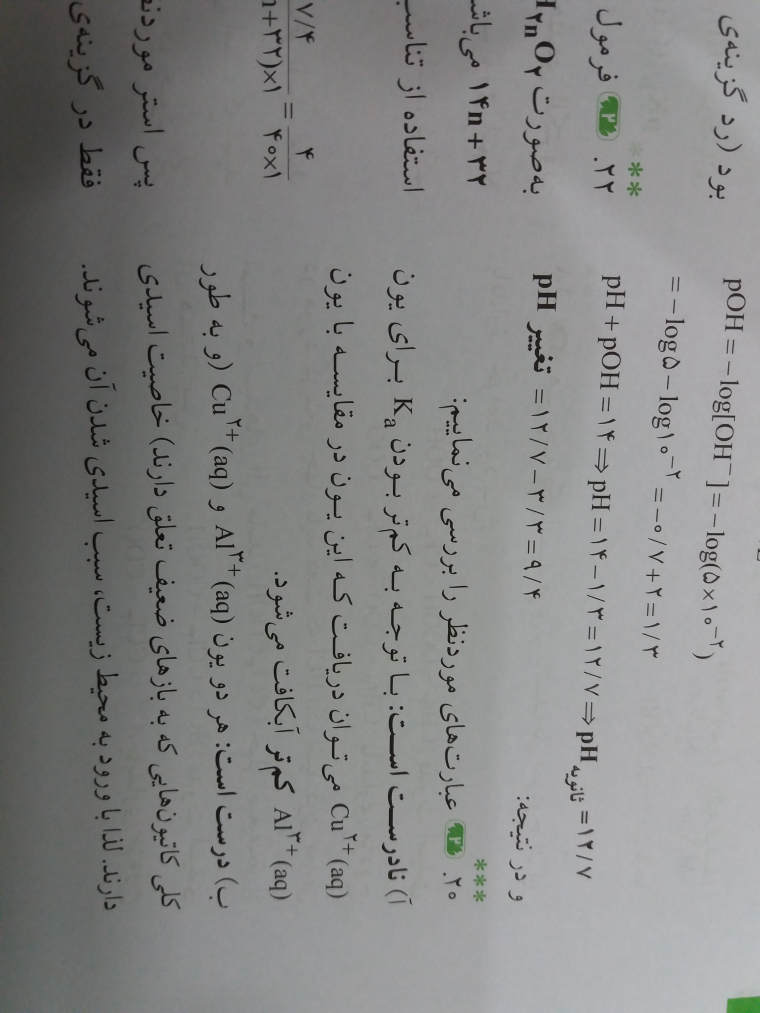 pOH = −log[OH⁻] = −log(۵×۱۰⁻²)
= −log۵ − log۱۰⁻² = −۰/۷ + ۲ = ۱/۳
pH + pOH = ۱۴ ⇒ pH = ۱۴ − ۱/۳ = ۱۲/۷ ⇒ pH ثانویه = ۱۲/۷
و در نتیجه:
تغییر pH = ۱۲/۷ − ۳/۳ = ۹/۴
***
۲۰. عبارت‌های موردنظر را بررسی می‌نماییم:
آ) نادرست است: با توجه به کم‌تر بودن Kₐ برای یون
Cu²⁺(aq) می‌توان دریافت که این یون در مقایسه با یون
Al³⁺(aq) کم‌تر آبکافت می‌شود.
ب) درست است: هر دو یون Al³⁺(aq) و Cu²⁺(aq) (و به طور
کلی کاتیون‌هایی که به بازهای ضعیف تعلق دارند) خاصیت اسیدی
دارند. لذا با ورود به محیط زیست، سبب اسیدی شدن آن می‌شوند.
بود (رد گزینه‌ی
**
۲۲. فرمول
به‌صورت
۱۴n + ۳۲
استفاده از
۴
۴۰×۱
=
پس استر
فقط در گزینه‌ی